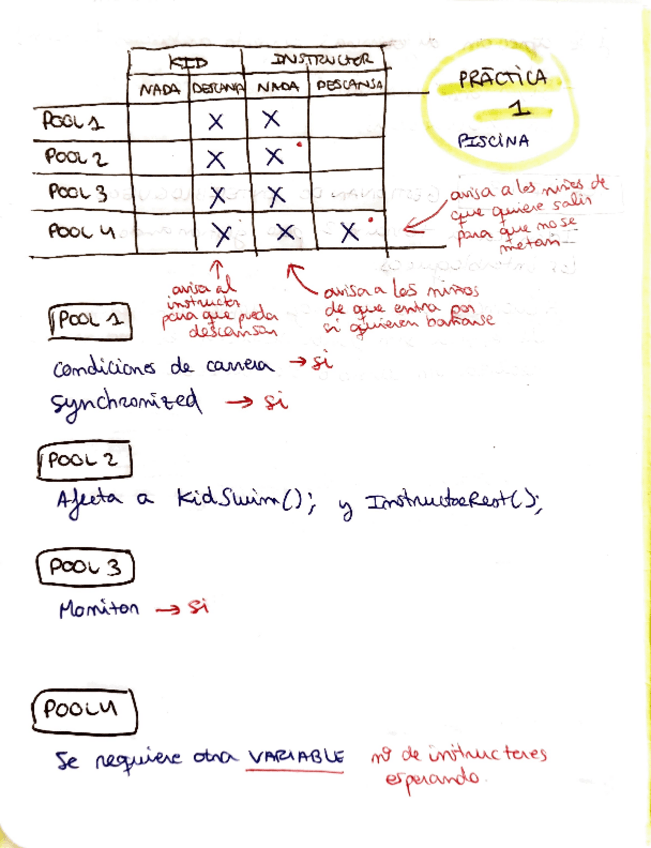 KID INSTRUCTOR
NADA DESCANSA NADA DESCANSA
POOL 1 X X
POOL 2 X X
POOL 3 X X
POOL 4 X X X
PRÁCTICA
1
PISCINA
avisa a los niños de
que quiere salir
para que no se
metan
avisa al
instructor
para que pueda
descansar
avisa a los niños
de que entra por
si quieren bañarse
POOL 1
Condiciones de carrera → si
synchronized → si
POOL 2
Afecta a KidSwim(); y InstructorRest();
POOL 3
Monitor → si
POOL 4
Se requiere otra VARIABLE nº de instructores
esperando.